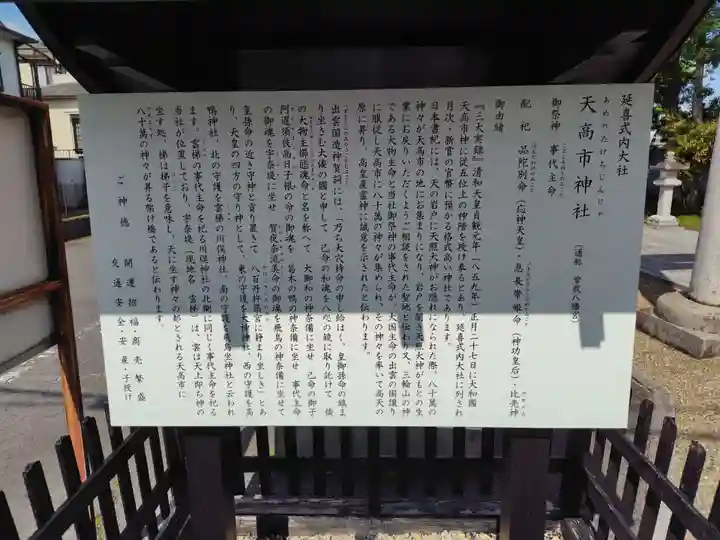 延喜式内大社
天高市神社
あめのたけちじんじゃ
(通称 曽我八幡宮)
御祭神 事代主命
配祀 品陀別命(応神天皇)・息長帯姫命(神功皇后)・比売神
御由緒
『三大実録』清和天皇貞観元年(八五九年)正月二十七日に大和國
天高市神に従五位上の神階を授け奉るとあり、延喜式内大社に列され
月次・新嘗の官幣に預かる格式高い神社であります。
日本書紀には、天の岩戸に天照大神がお隠れになられた際、八十萬の
神々が天高市の地にお集まりになり、岩戸を開き天照大神がもとの生
業にお戻りいただくようご相談をされた聖地と伝わり又、三輪山の神
である大物主命と当社御祭神の事代主命が、大国主命の出雲の国譲り
に服従し天高市に八十萬の神々が集められ、その神々を率いて高天の
原に昇り、高皇産霊神に誠意を示されたと伝わります。
出雲国造神賀詞には、「乃ち大穴持命の申し給はく、皇御孫命の鎮ま
り坐さむ大倭の國と申して、己命の和魂を八咫の鏡に取り託けて 倭
の大物主櫛𤭖魂命と名を称へて 大御和の神奈備に坐せ 己命の御子
阿遅須伎高日子根の命の御魂を 葛木の鴨の神奈備に坐せ 事代主命
の御魂を宇奈堤に坐せ 賀夜奈流美命の御魂を飛鳥の神奈備に坐せて
皇孫命の近き守神と貢り置きて 八百丹杵築宮に静まり坐しき」とあ
り、天皇の四方の守り神として、東の守護を大神神社、西の守護を高
鴨神社、北の守護を雲梯の川俣神社、南の守護を飛鳥坐神社と云われ
ます。雲梯の事代主命を祀る川俣神社の北側に同じく事代主命を祀る
当社が位置しており、宇奈堤(現地名 雲梯)は、雲は天上即ち神の
坐す処、梯は梯子を意味し、天に坐す神々の都とされる天高市に
八十萬の神々が昇る架け橋であると伝わります。
ご神徳 開運招福・商売繁盛
交通安全・安産・子授け